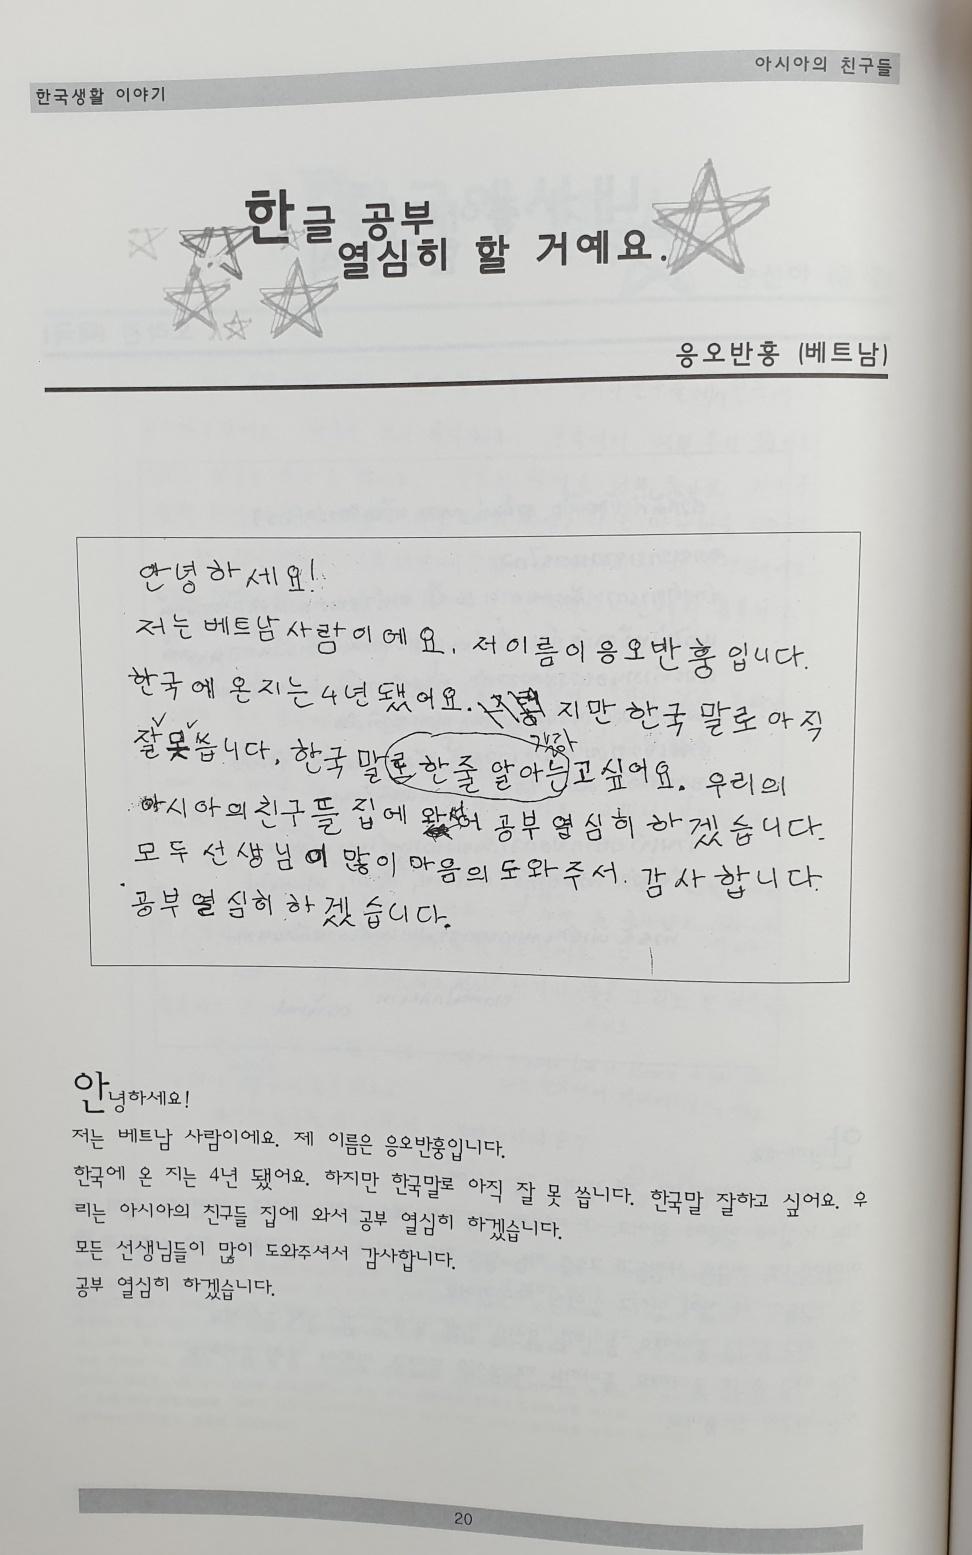 아시아의 친구들
한국생활 이야기
한글 공부
열심히 할 거예요.
응오반흥 (베트남)
안녕하세요!
저는 베트남 사람이에요. 저 이름이 응오반흥입니다.
한국에 온지는 4년 됐어요. 지만 한국말로 아직
잘못씁니다. 한국말로 한줄 알아는고싶어요. 우리의
아시아의친구들 집에 공부 열심히 하겠습니다.
모두 선생님이 많이 마음의 도와주서 감사합니다.
공부 열심히 하겠습니다.
안녕하세요!
저는 베트남 사람이에요. 제 이름은 응오반흥입니다.
한국에 온 지는 4년 됐어요. 하지만 한국말로 아직 잘 못 씁니다. 한국말 잘하고 싶어요. 우
리는 아시아의 친구들 집에 와서 공부 열심히 하겠습니다.
모든 선생님들이 많이 도와주셔서 감사합니다.
공부 열심히 하겠습니다.
20